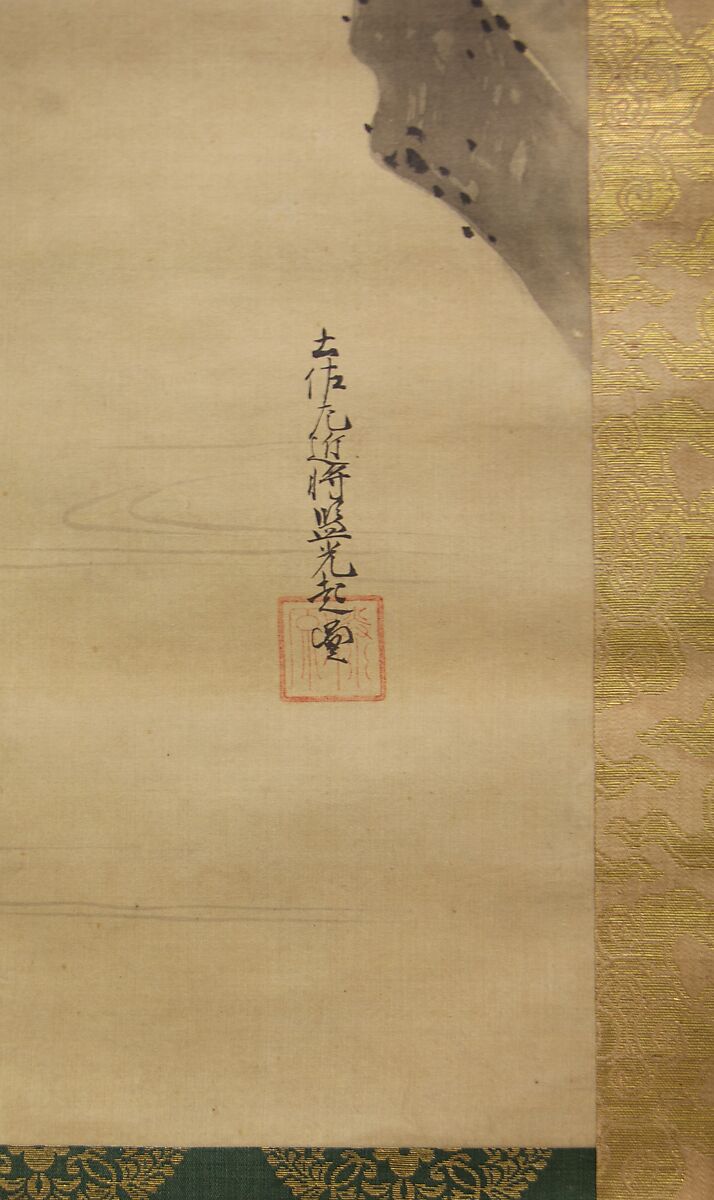 土佐左近将監光起圖